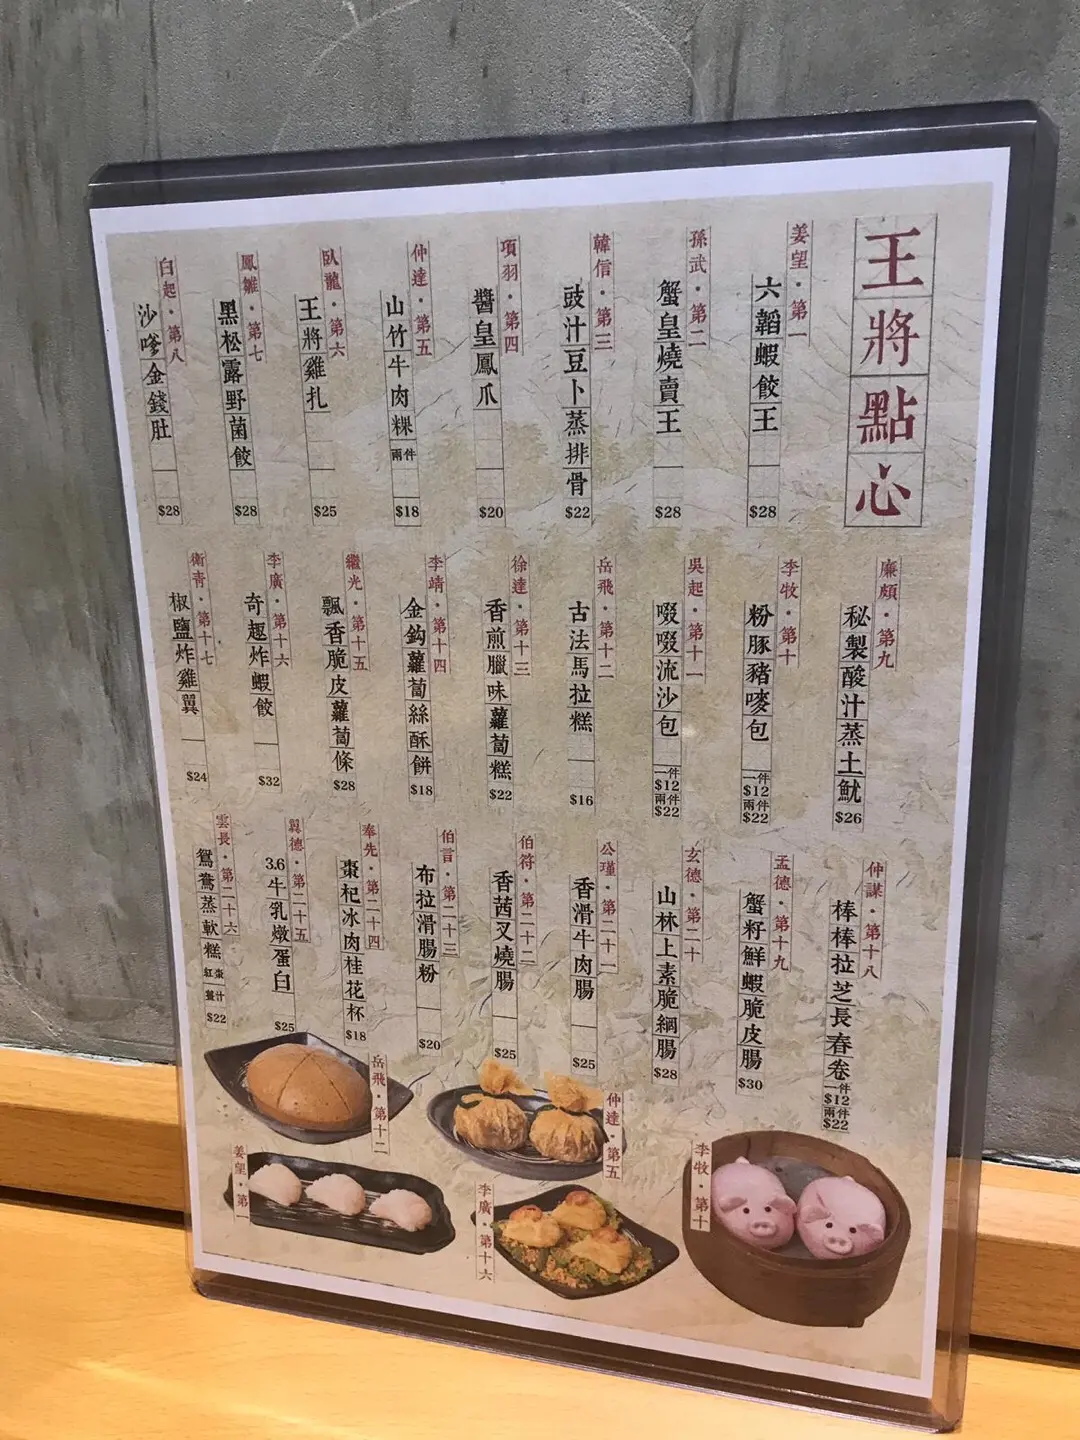 王將點心
姜望·第一
六韜蝦餃王
$28
孫武·第二
蟹皇燒賣王
$28
韓信·第三
豉汁豆卜蒸排骨
$22
項羽·第四
醬皇鳳爪
$20
仲達·第五
山竹牛肉粿 兩件
$18
臥龍·第六
王將雞扎
$25
鳳雛·第七
黑松露野菌餃
$28
白起·第八
沙嗲金錢肚
$28
廉頗·第九
秘製酸汁蒸土魷
$26
李牧·第十
粉豚豬嘜包
一件
$12
兩件
$22
吳起·第十一
啜啜流沙包
一件
$12
兩件
$22
岳飛·第十二
古法馬拉糕
$16
徐達·第十三
香煎臘味蘿蔔糕
$22
李靖·第十四
金鈎蘿蔔絲酥餅
$18
繼光·第十五
飄香脆皮蘿蔔條
$28
李廣·第十六
奇趣炸蝦餃
$32
衛青·第十七
椒鹽炸雞翼
$24
仲謀·第十八
棒棒拉芝長春卷
一件
$12
兩件
$22
孟德·第十九
蟹籽鮮蝦脆皮腸
$30
玄德·第二十
山林上素脆網腸
$28
公瑾·第二十一
香滑牛肉腸
$25
伯符·第二十二
香茜叉燒腸
$25
伯言·第二十三
布拉滑腸粉
$20
奉先·第二十四
棗杞冰肉桂花杯
$18
翼德·第二十五
3.6牛乳燉蛋白
$25
雲長·第二十六
鴛鴦蒸軟糕 紅棗 薑汁
$22
岳飛·第十二
仲達·第五
姜望·第一
李廣·第十六
李牧·第十